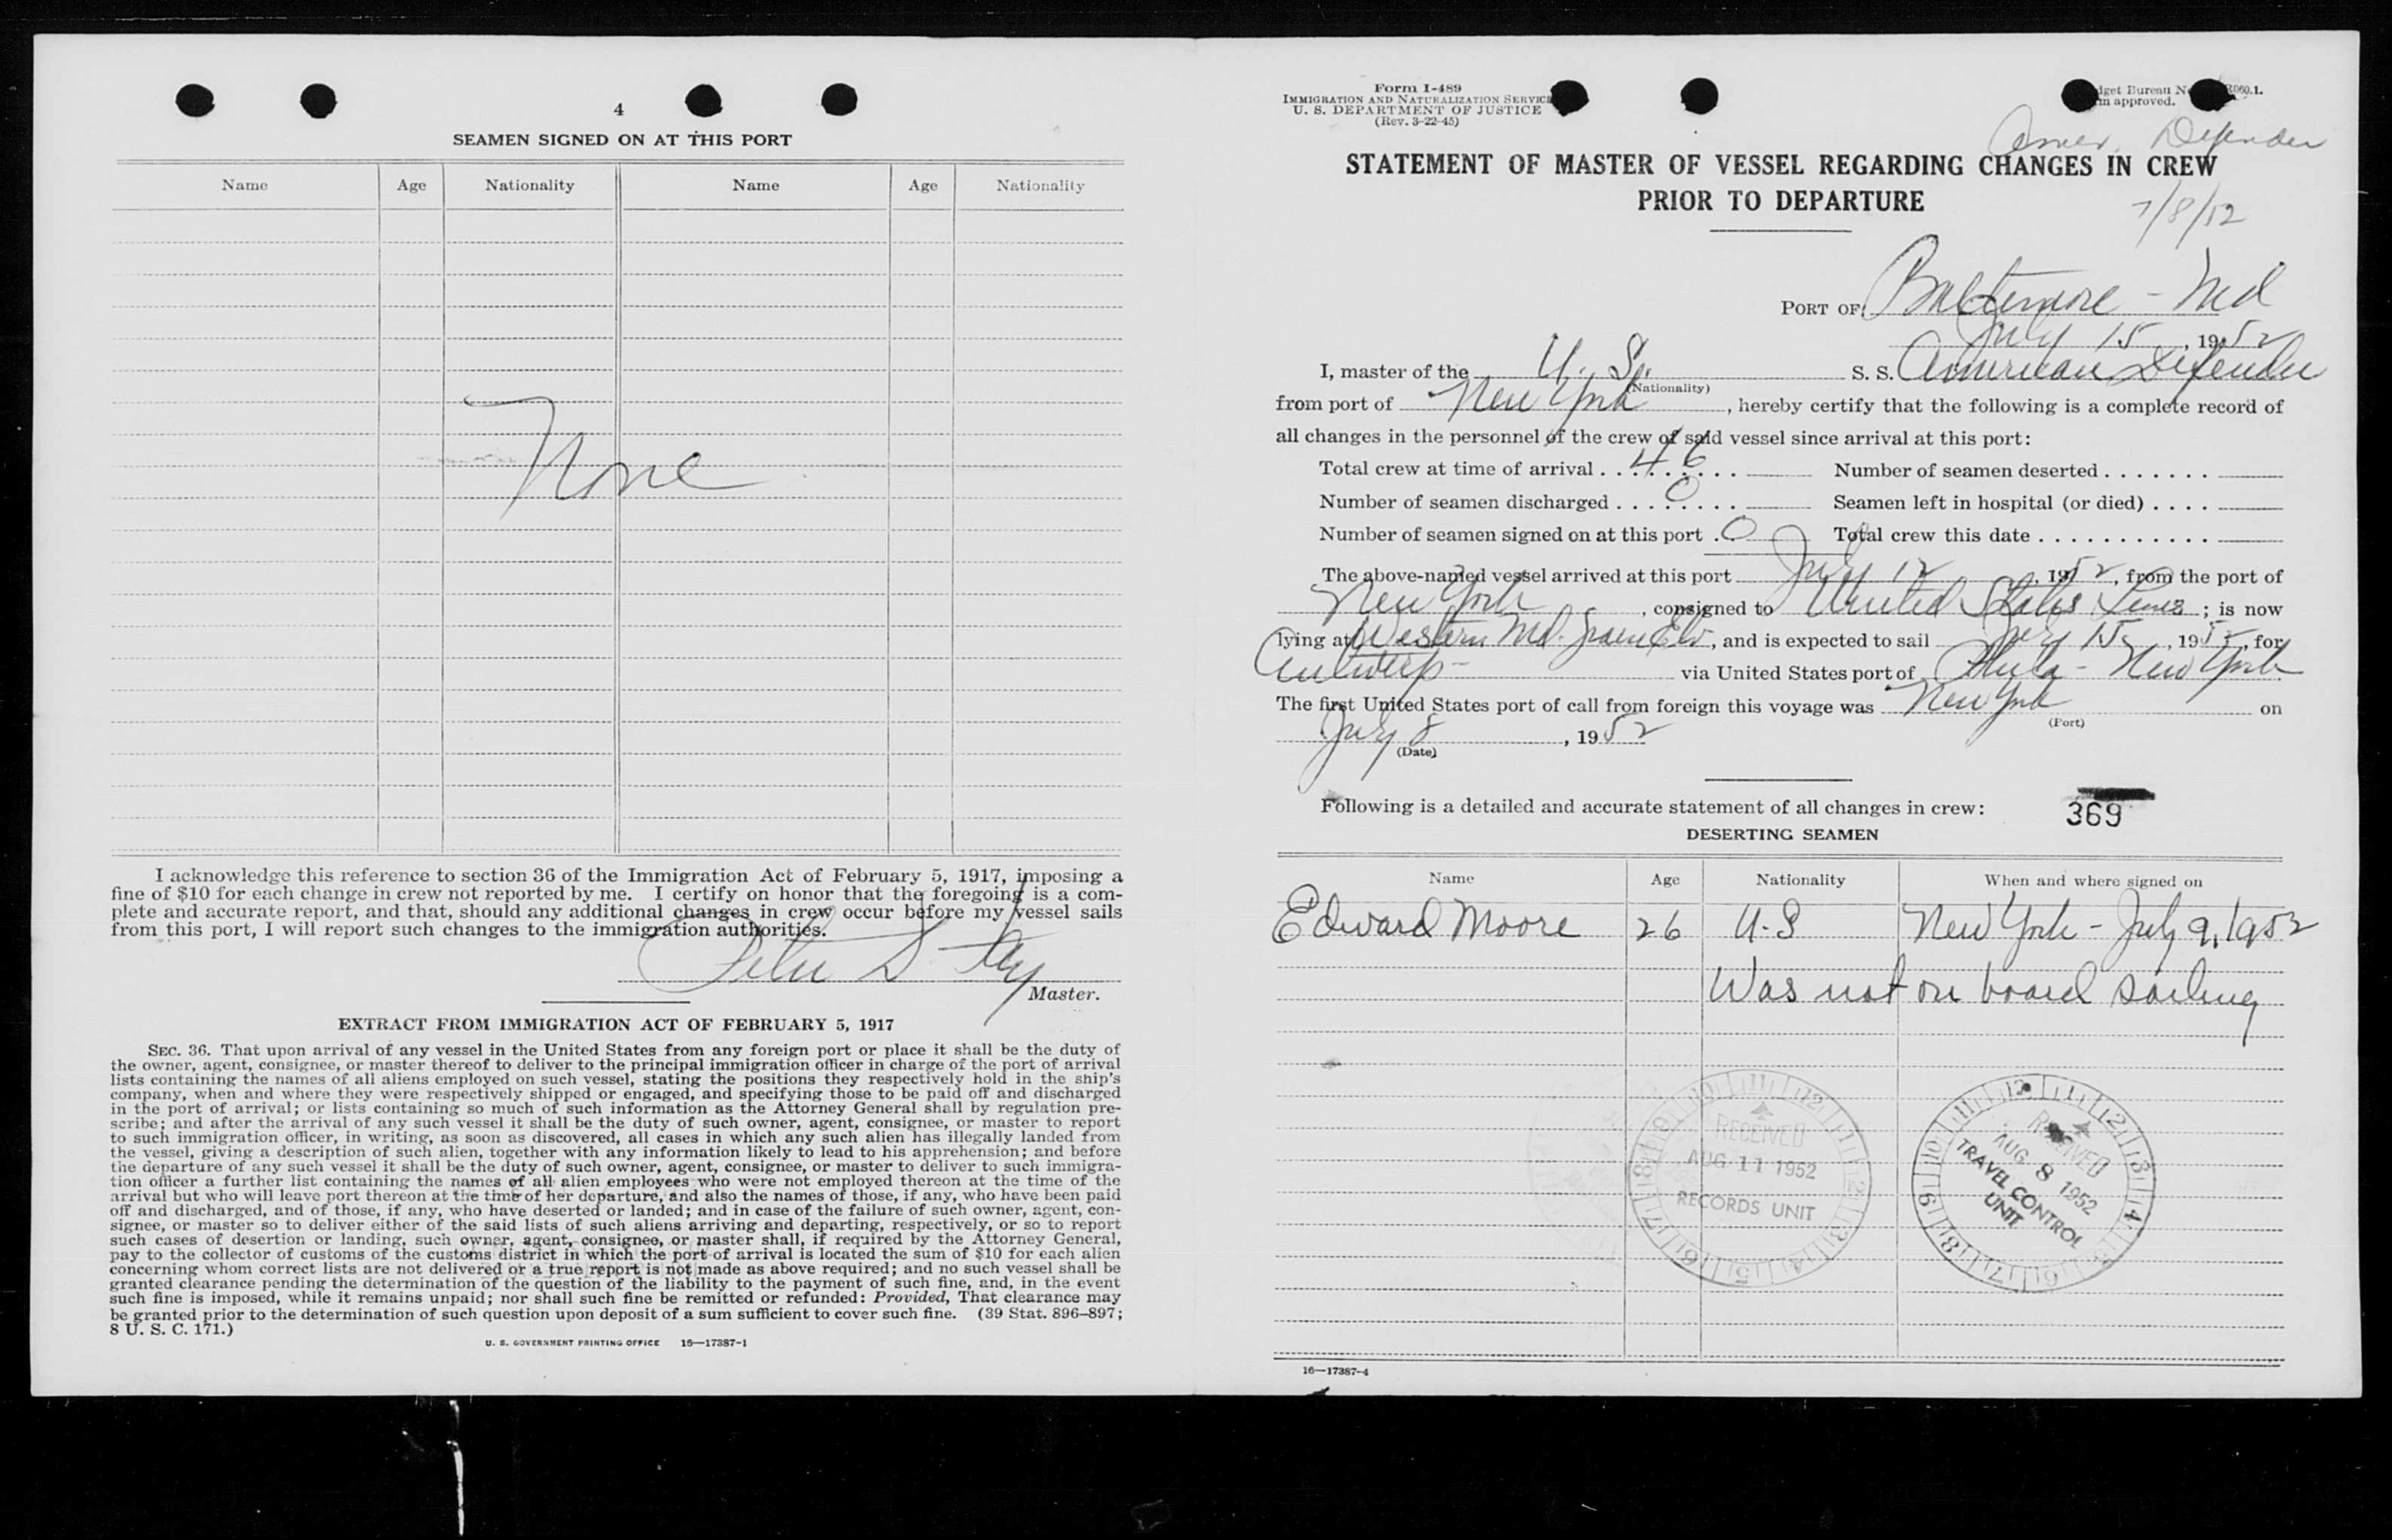 4
SEAMEN SIGNED ON AT THIS PORT
Name Age Nationality Name Age Nationality
None
I acknowledge this reference to section 36 of the Immigration Act of February 5, 1917, imposing a
fine of $10 for each change in crew not reported by me. I certify on honor that the foregoing is a com-
plete and accurate report, and that, should any additional changes in crew occur before my vessel sails
from this port, I will report such changes to the immigration authorities.
Master.
EXTRACT FROM IMMIGRATION ACT OF FEBRUARY 5, 1917
SEC. 36. That upon arrival of any vessel in the United States from any foreign port or place it shall be the duty of
the owner, agent, consignee, or master thereof to deliver to the principal immigration officer in charge of the port of arrival
lists containing the names of all aliens employed on such vessel, stating the positions they respectively hold in the ship's
company, when and where they were respectively shipped or engaged, and specifying those to be paid off and discharged
in the port of arrival; or lists containing so much of such information as the Attorney General shall by regulation pre-
scribe; and after the arrival of any such vessel it shall be the duty of such owner, agent, consignee, or master to report
to such immigration officer, in writing, as soon as discovered, all cases in which any such alien has illegally landed from
the vessel, giving a description of such alien, together with any information likely to lead to his apprehension; and before
the departure of any such vessel it shall be the duty of such owner, agent, consignee, or master to deliver to such immigra-
tion officer a further list containing the names of all alien employees who were not employed thereon at the time of the
arrival but who will leave port thereon at the time of her departure, and also the names of those, if any, who have been paid
off and discharged, and of those, if any, who have deserted or landed; and in case of the failure of such owner, agent, con-
signee, or master so to deliver either of the said lists of such aliens arriving and departing, respectively, or so to report
such cases of desertion or landing, such owner, agent, consignee, or master shall, if required by the Attorney General,
pay to the collector of customs of the customs district in which the port of arrival is located the sum of $10 for each alien
concerning whom correct lists are not delivered or a true report is not made as above required; and no such vessel shall be
granted clearance pending the determination of the question of the liability to the payment of such fine, and, in the event
such fine is imposed, while it remains unpaid; nor shall such fine be remitted or refunded: Provided, That clearance may
be granted prior to the determination of such question upon deposit of a sum sufficient to cover such fine. (39 Stat. 896–897;
8 U. S. C. 171.)
U. S. GOVERNMENT PRINTING OFFICE 16—17387-1
Form I-489
IMMIGRATION AND NATURALIZATION SERVICE
U. S. DEPARTMENT OF JUSTICE
(Rev. 3-22-45)
dget Bureau N R060.1.
m approved.
Amer. Defender
STATEMENT OF MASTER OF VESSEL REGARDING CHANGES IN CREW
PRIOR TO DEPARTURE
7/8/52
PORT OF Baltimore - Md
July 15, 1952
I, master of the U. S. S. S. American Defender
(Nationality)
from port of New York, hereby certify that the following is a complete record of
all changes in the personnel of the crew of said vessel since arrival at this port:
Total crew at time of arrival . . 46 Number of seamen deserted . . . . . . .
Number of seamen discharged . . . 0 Seamen left in hospital (or died) . . . .
Number of seamen signed on at this port . 0 Total crew this date . . . . . . . . . . .
The above-named vessel arrived at this port July 12, 1952, from the port of
New York, consigned to United States Lines; is now
lying at Western Md. Grain Elv, and is expected to sail July 15, 1952, for
Antwerp - via United States port of Phila - New York
The first United States port of call from foreign this voyage was New York on
(Port)
July 8, 1952
(Date)
Following is a detailed and accurate statement of all changes in crew: 369
DESERTING SEAMEN
Name Age Nationality When and where signed on
Edward Moore 26 U.S New York - July 9, 1952
Was not on board sailing
RECEIVED
AUG 11 1952
RECORDS UNIT
RECEIVED
AUG 8 1952
TRAVEL CONTROL
UNIT
16—17387-4